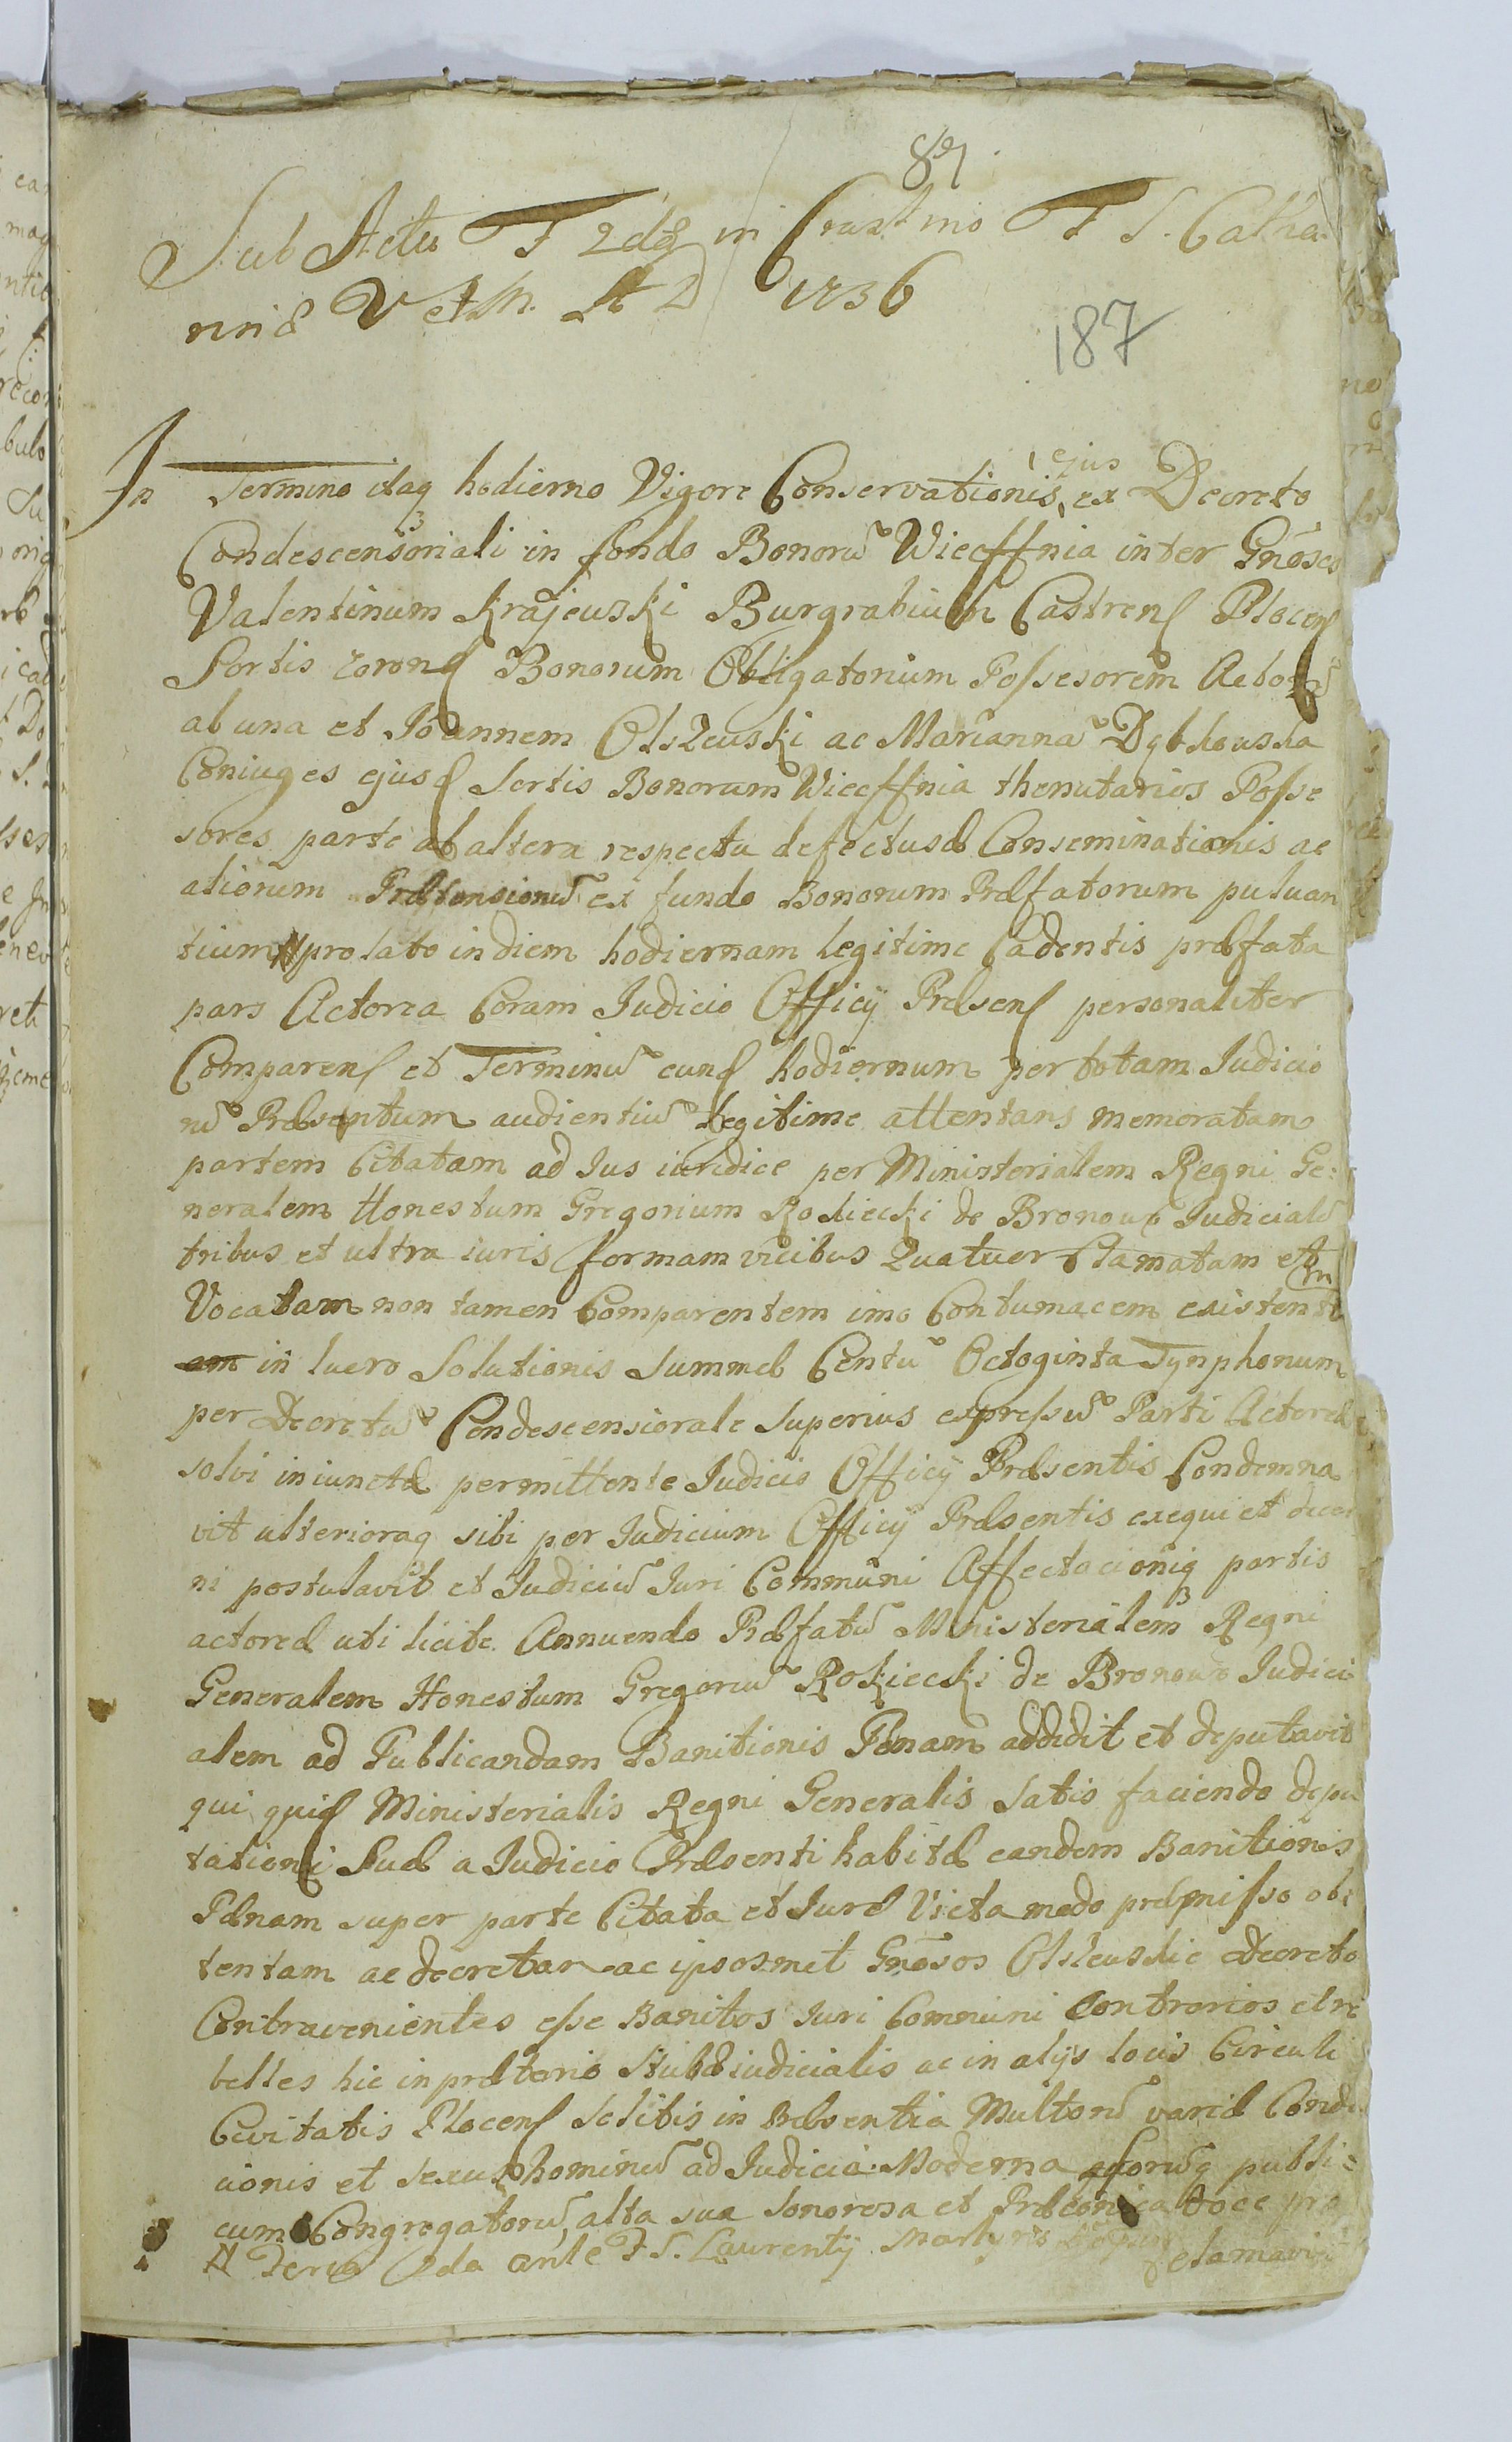 89
Sub Actu F 2dæ in Crastino F S. Catha
rinæ V et M. A D 1736
187
In Termino itaq hodierno Vigore Conservationis ejus ex Decreto
Condescensoriali in fondo Bonorũ Wieczffnia inter Gnõsos
Valentinum Krajewski Burgrabium Castrens Plocens
Sortis eorund Bonorum Obligatorium Possesorem Actorẽ
ab una et Joannem Olszewski ac Mariannã Dębkowska
Coniuges ejusd Sortis Bonorum Wieczffnia thenutarios Posse
sores parte ab altera respectu defectusæ Conseminationis ac
aliorum Prætensionũ ex fundo Bonorum Præfatorum pululan
tium # prolato in diem hodiernam legitime Cadentis præfata
pars Actorea Coram Judicio Officij Præsens personaliter
Comparens et Terminũ eund hodiernum per totam Judicio
rũ Præsentum audientiũ legitime attentans memoratam
partem Citatam ad Jus iuridice per Ministerialem Regni Ge:
neralem Honestum Gregorium Rokiecki de Bronowo Judicialẽ
tribus et ultra iuris formam vicibus Quatuor Clamatam et
Vocatam non tamen Comparentem imo Contumacem existentem
in lucro Solutionis Summæ Centũ Octoginta Tynphonum
per Decretũ Condescensiorale Superius expressũ Parti Actoreæ
solvi iniunctæ permittente Judicio Officij Præsentis Condemna
vit ulterioraq sibi per Judicium Officij Præsentis exequi et decer
ni postulavit et Judiciũ Juri Communi Affectacioniq partis
actoreæ uti licite Annuendo Præfatũ Ministerialem Regni
Generalem Honestum Gregoriũ Rokiecki de Bronowo Judici
alem ad Publicandam Banitionis Pænam addidit et deputavit
qui quid Ministerialis Regni Generalis Satis faciendo depu
tationi Suæ a Judicio Præsenti habitæ eandem Banitionis
Pænam super parte Citata et Jure Victa modo præmisso ob
tentam ac decretam ac ipsosmet Gnõsos Olszewskie Decreto
Contravenientes esse Banitos Juri Communi Contrarios et re
belles hic in prætorio Stubæ iudicialis ac in alijs locis Circuli
Civitatis Plocens Solitis in Præsentia Multorũ variæ Condi
cionis et sexus hominũ ad Judicia Moderna forũq publi-
cum Congregatorũ alta sua Sonorosa et Præconica voce pro
# Feria 2da ante F S. Laurentij Martyris
clamavit